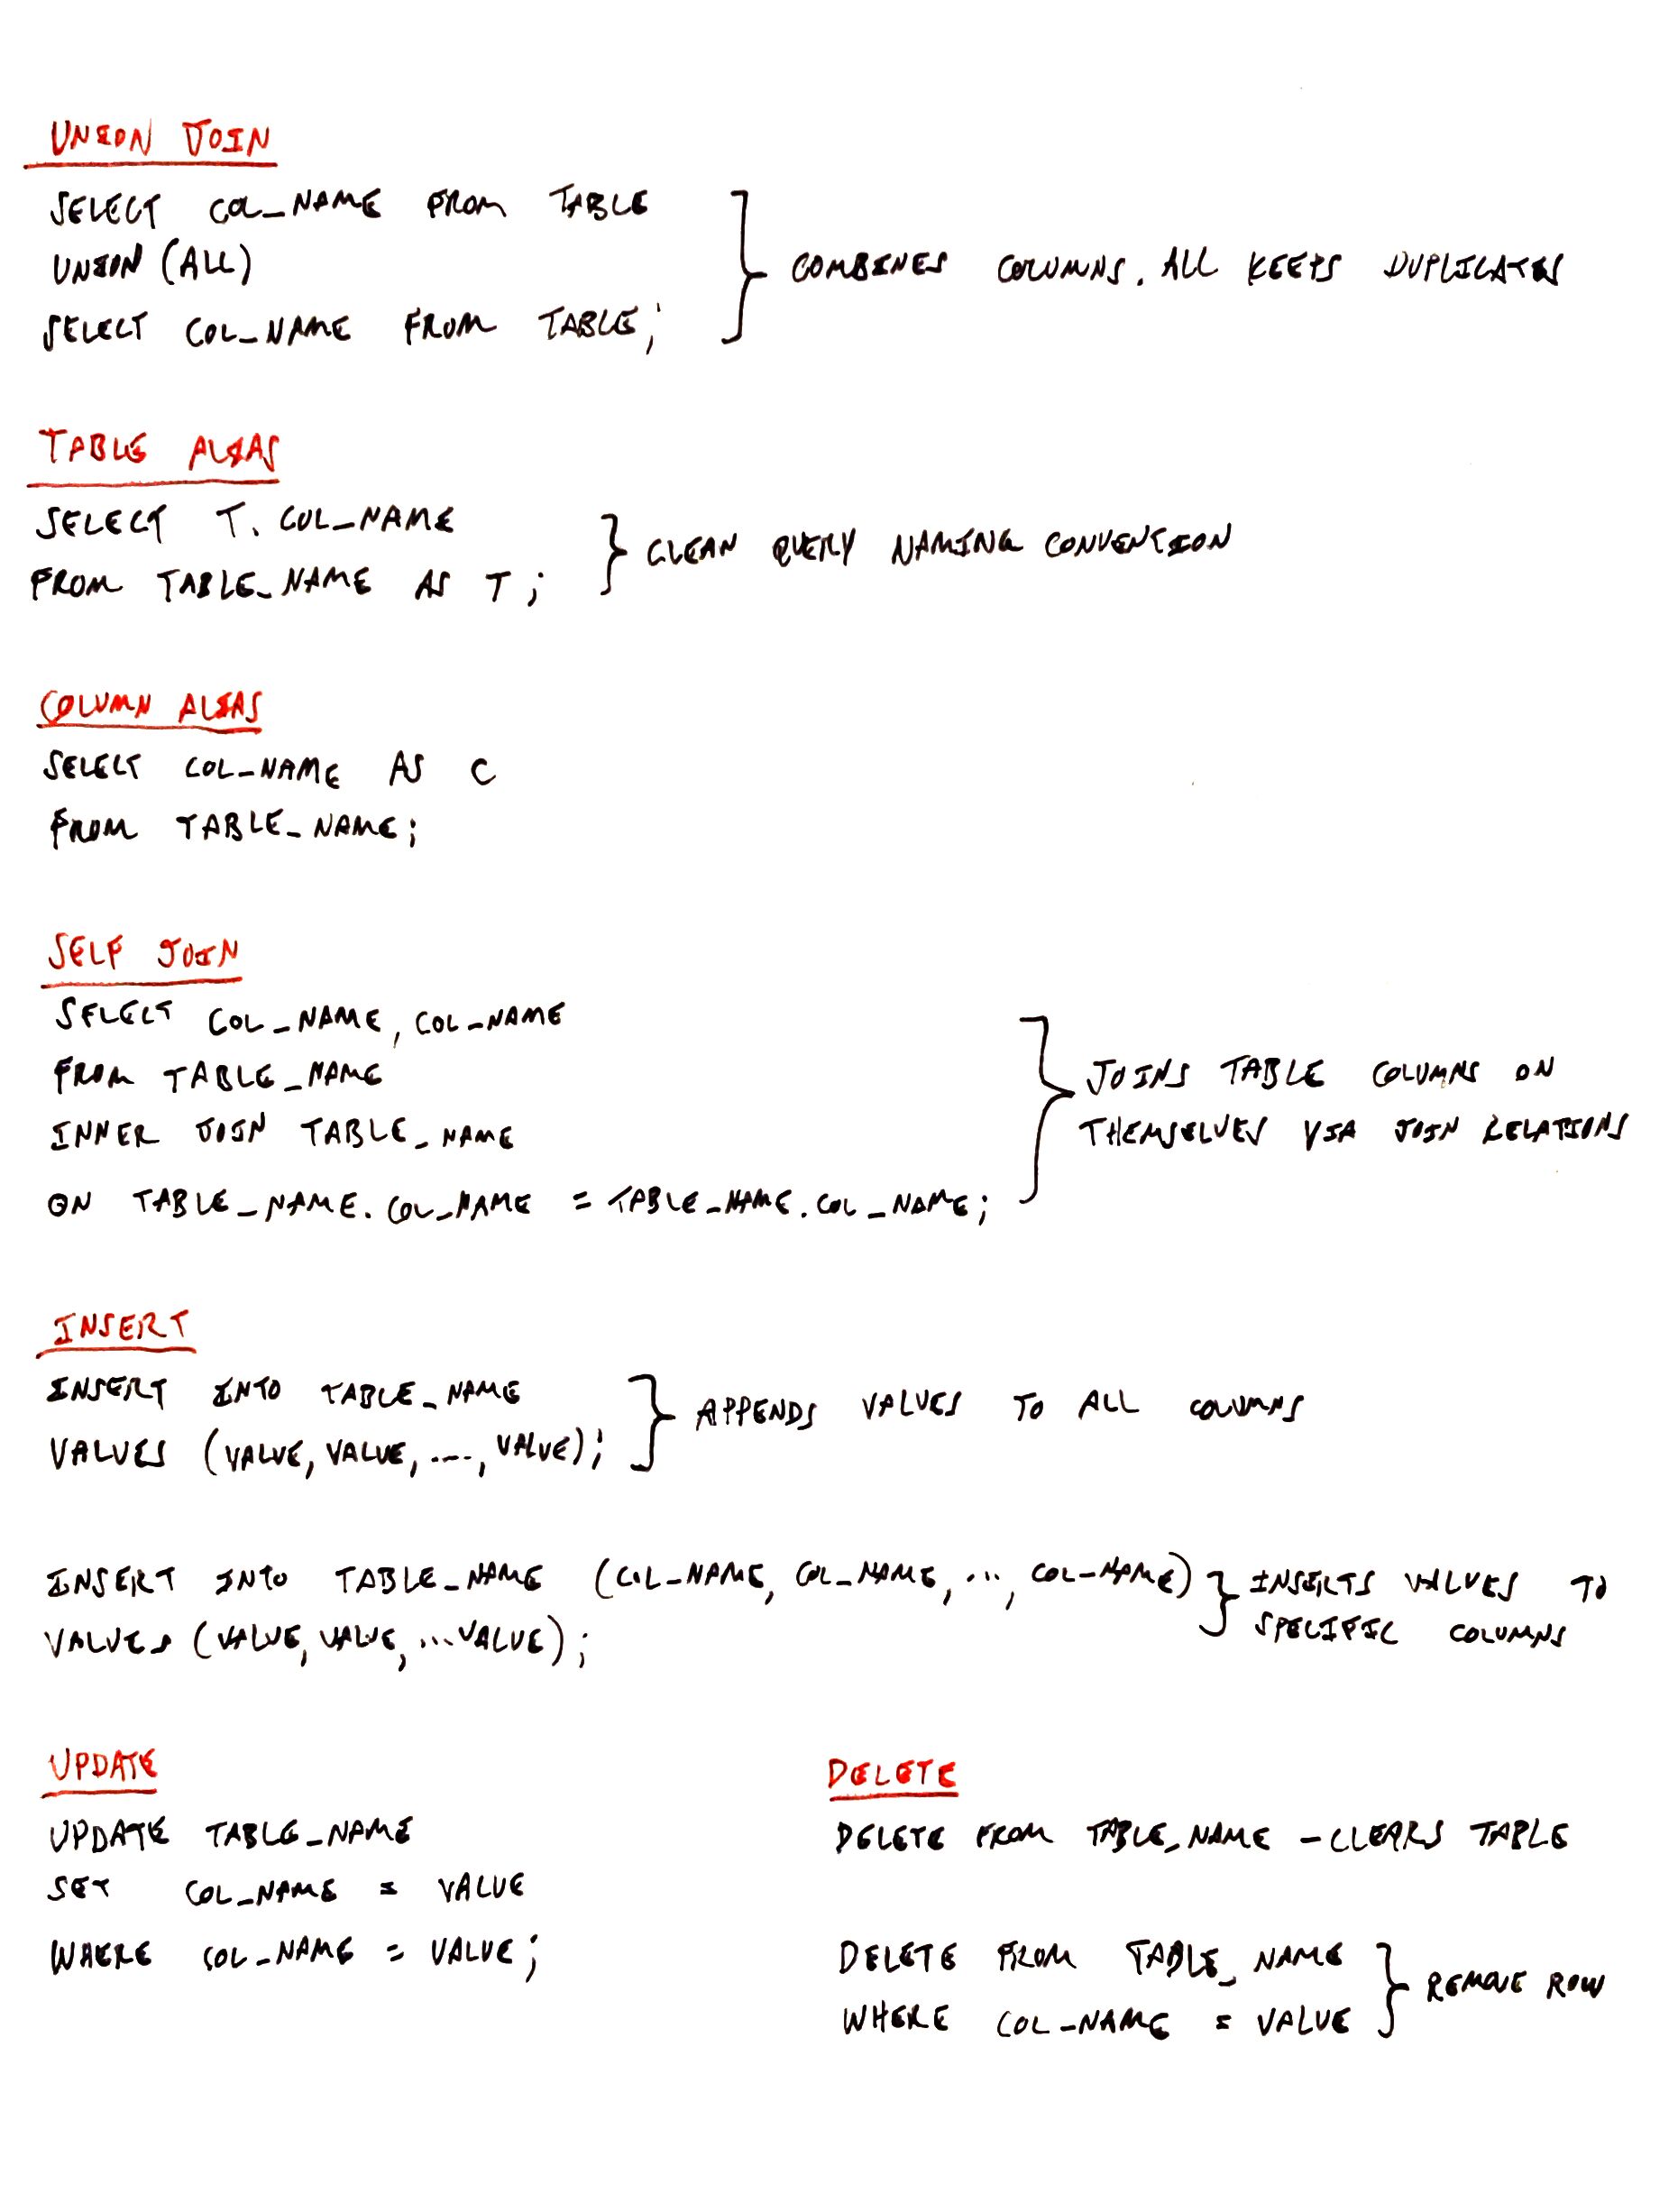 UNION JOIN
SELECT COL_NAME FROM TABLE
UNION (ALL)
SELECT COL_NAME FROM TABLE;
COMBINES COLUMNS. ALL KEEPS DUPLICATES
TABLE ALIAS
SELECT T. COL_NAME
FROM TABLE_NAME AS T;
CLEAN QUERY NAMING CONVENTION
COLUMN ALIAS
SELECT COL_NAME AS C
FROM TABLE_NAME;
SELF JOIN
SELECT COL_NAME, COL_NAME
FROM TABLE_NAME
INNER JOIN TABLE_NAME
ON TABLE_NAME.COL_NAME = TABLE_NAME.COL_NAME;
JOINS TABLE COLUMNS ON
THEMSELVES VIA JOIN RELATIONS
INSERT
INSERT INTO TABLE_NAME
VALUES (VALUE, VALUE, ...., VALUE);
APPENDS VALUES TO ALL COLUMNS
INSERT INTO TABLE_NAME (COL_NAME, COL_NAME, ..., COL_NAME)
VALUES (VALUE, VALUE, ... VALUE);
INSERTS VALUES TO
SPECIFIC COLUMNS
UPDATE
UPDATE TABLE_NAME
SET COL_NAME = VALUE
WHERE COL_NAME = VALUE;
DELETE
DELETE FROM TABLE_NAME - CLEARS TABLE
DELETE FROM TABLE_NAME
WHERE COL_NAME = VALUE
REMOVE ROW